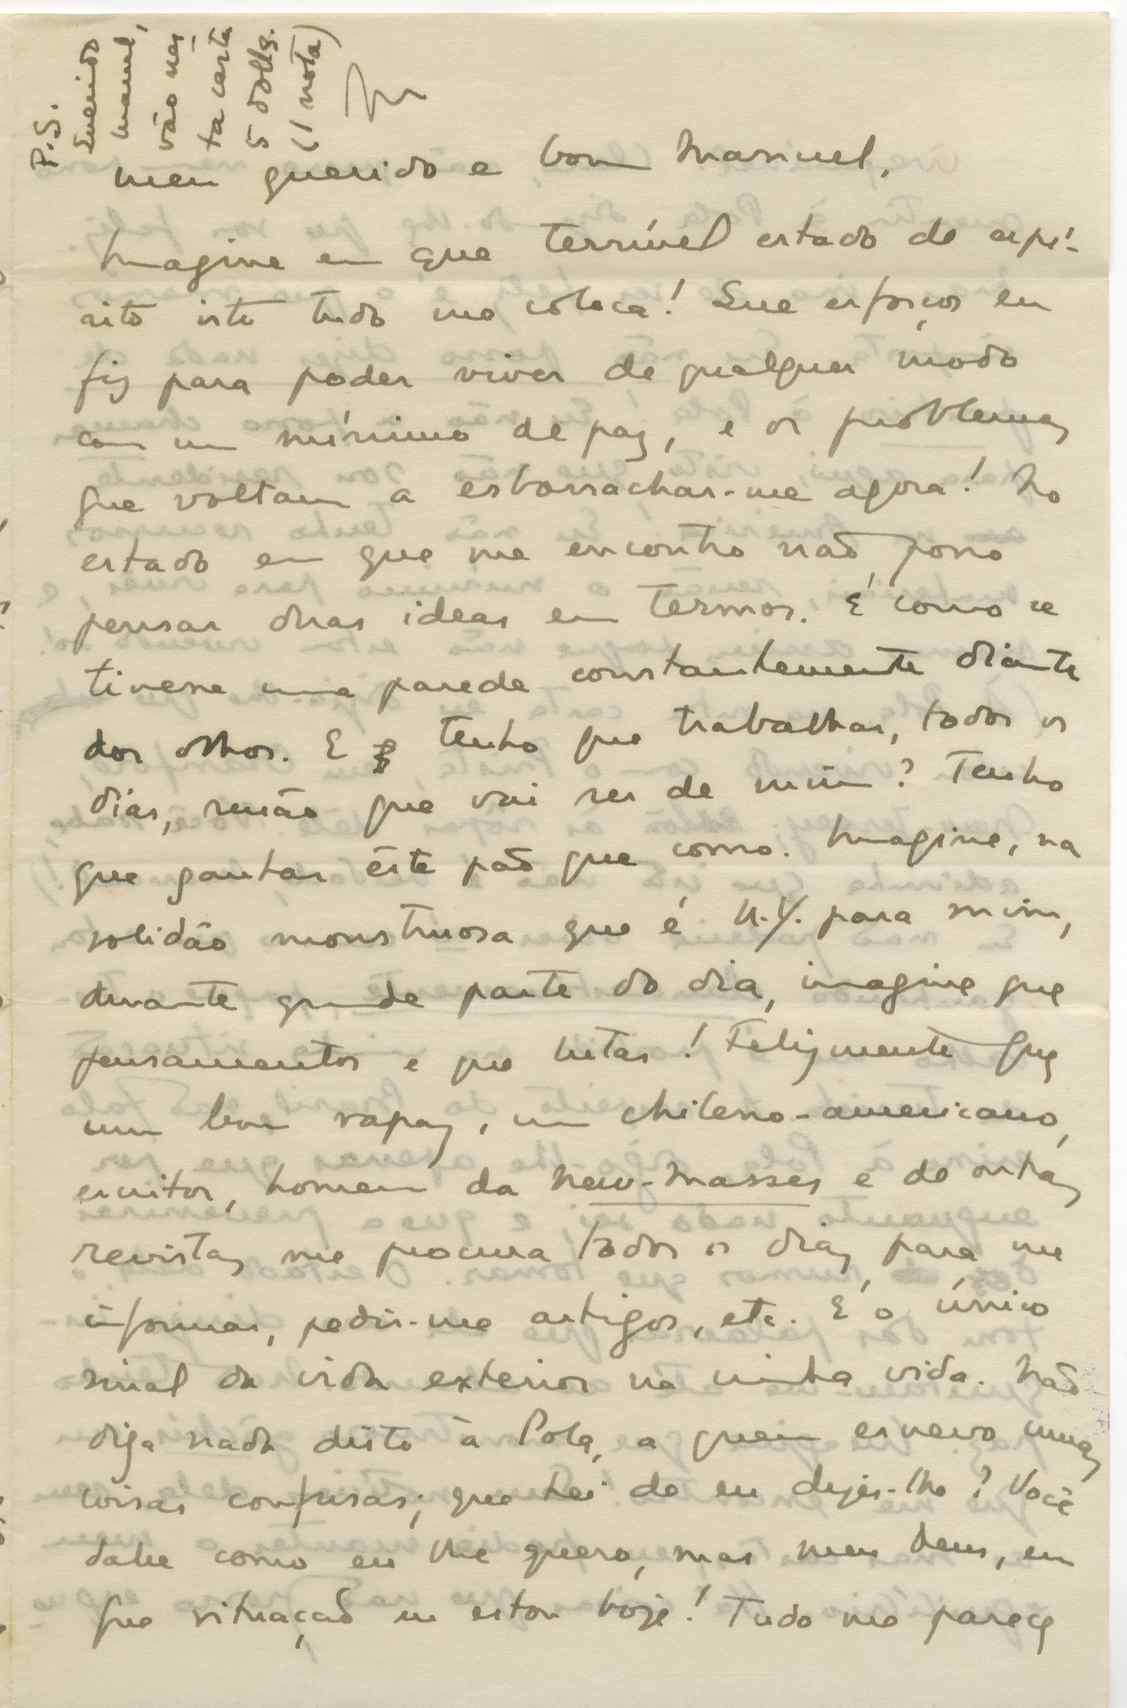 P.S.
Querido
Manuel,
vão nes
ta carta
5 dolls.
(1 nota)
Meu querido e bom Manuel,
Imagine em que terrível estado de espí-
rito isto tudo me coloca! Que esforços eu
fiz para poder viver de qualquer modo
com um mínimo de paz, e os problemas
que voltam a esborrachar-me agora! No
estado em que me encontro não posso
pensar duas ideas em termos. É como se
tivesse uma parede constantemente diante
dos olhos. E tenho que trabalhar, todos os
dias, senão que vai ser de mim? Tenho
que ganhar êste pão que como. Imagine, na
solidão monstruosa que é N.Y. para mim,
durante grande parte do dia, imagine que
pensamentos e que lutas! Felizmente que
um bom rapaz, um chileno-americano,
escritor, homem da New-Masses e de outras
revistas, me procura todos os dias para me
informar, pedir-me artigos, etc. É o único
sinal da vida exterior na minha vida. Não
diga nada disto à Pola, a quem escrevo umas
coisas confusas; que hei de eu dizer-lhe? Você
sabe como eu lhe quero, mas meu Deus, em
que situação eu estou hoje! Tudo me parece